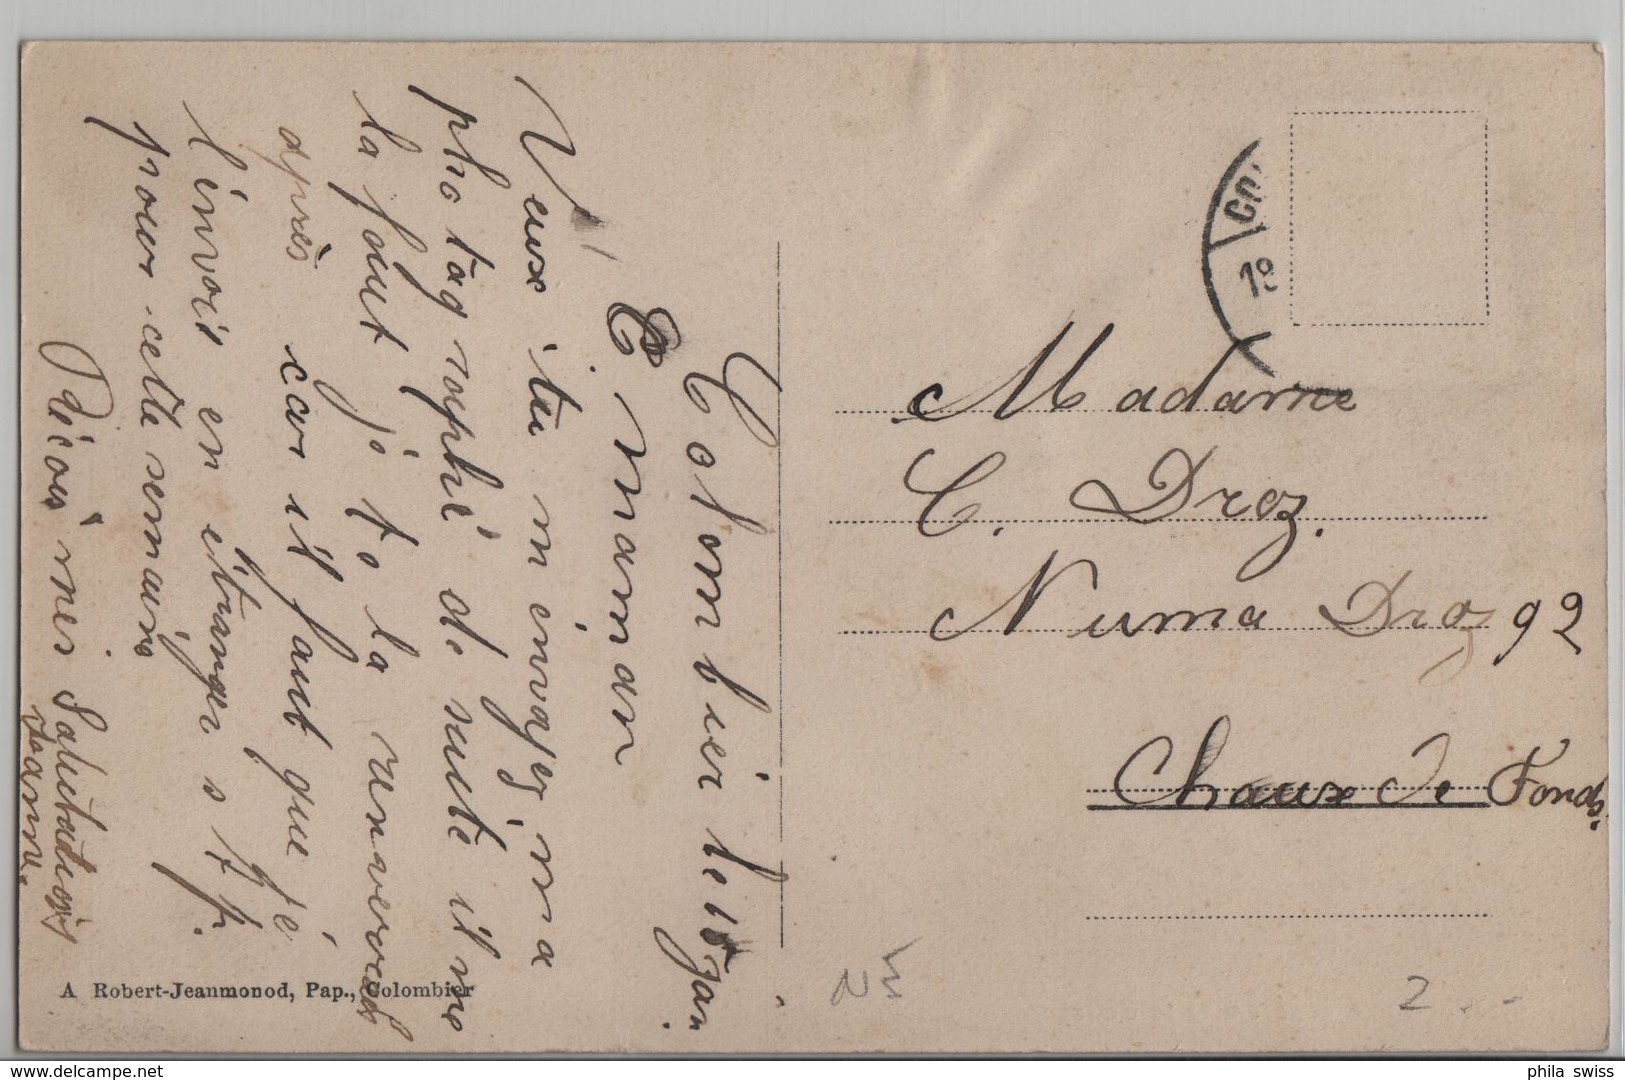 Colombier le 15 Jan.
C maman
Veux tu m'envoyer ma
photographié de suite il me
la faut je te la renverrai
après car il faut que jé
l'envoit en étranger s t p.
pour cette semaine
Récois mes Salutations
Jeanne.
Madame
C. Droz.
Numa Droz 92
Chaux de Fonds.
CO
19
A Robert-Jeanmonod, Pap., Colombier
2 . -
phila swiss
delcampe.net